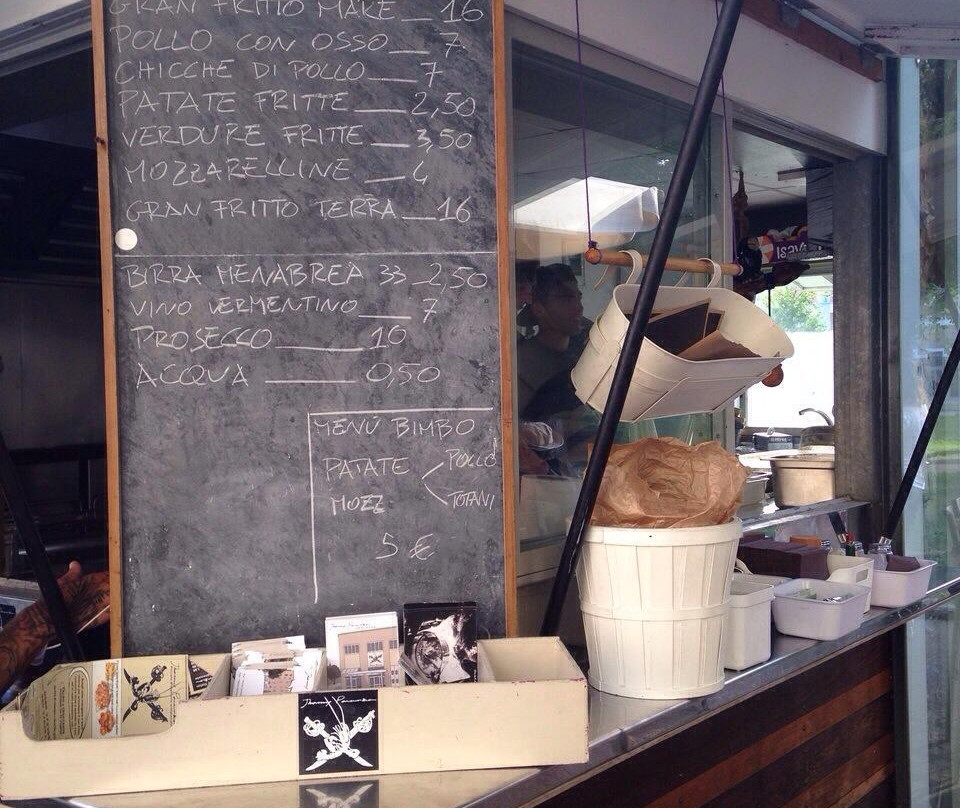 GRAN FRITTO MARE 16
POLLO CON OSSO 7
CHICCHE DI POLLO 7
PATATE FRITTE 2,50
VERDURE FRITTE 3,50
MOZZARELLINE 4
GRAN FRITTO TERRA 16
BIRRA MENABREA 33 2,50
VINO VERMENTINO 7
PROSECCO 10
ACQUA 0,50
MENÙ BIMBO
PATATE POLLO
MOZZ TOTANI
5 €